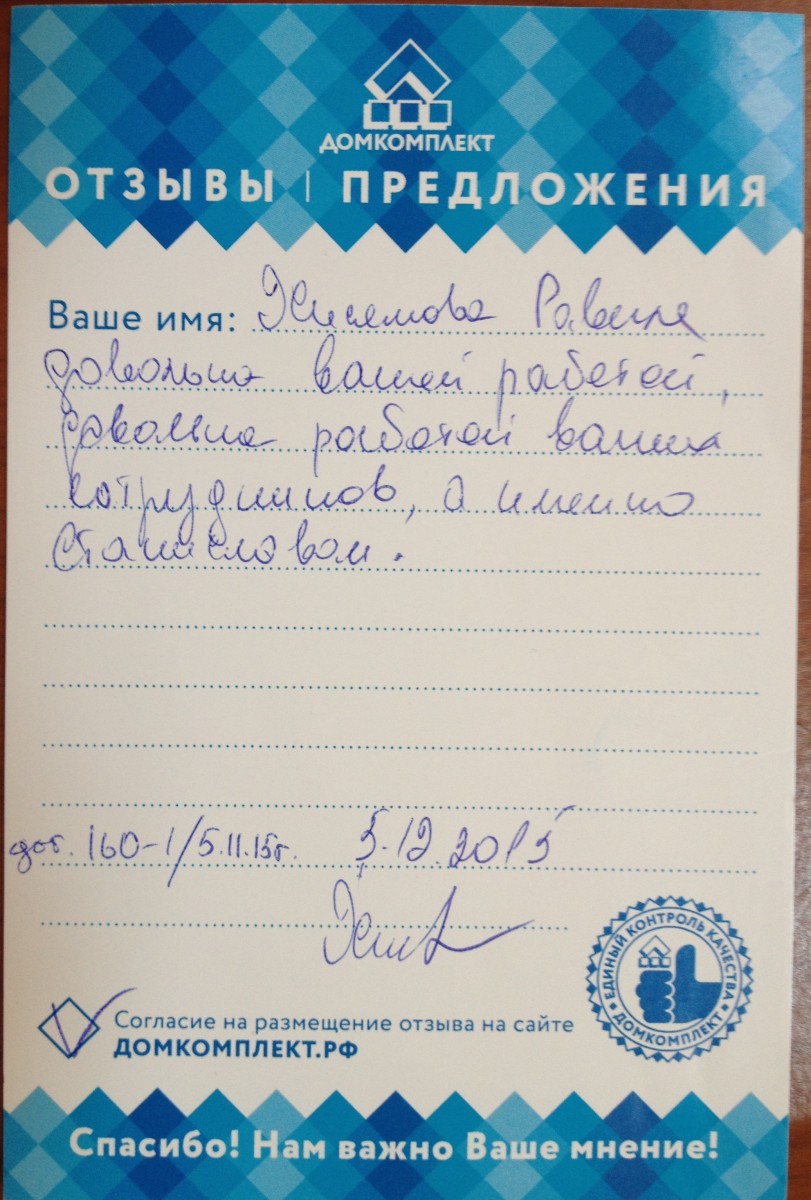 ДОМКОМПЛЕКТ
ОТЗЫВЫ | ПРЕДЛОЖЕНИЯ
Ваше имя:
довольна вашей работой,
довольна работой ваших
сотрудников, а именно
Станиславом.
дог. 160-1/5.11.15г. 5.12.2015
ЕДИНЫЙ КОНТРОЛЬ КАЧЕСТВА
ДОМКОМПЛЕКТ
Согласие на размещение отзыва на сайте
ДОМКОМПЛЕКТ.РФ
Спасибо! Нам важно Ваше мнение!